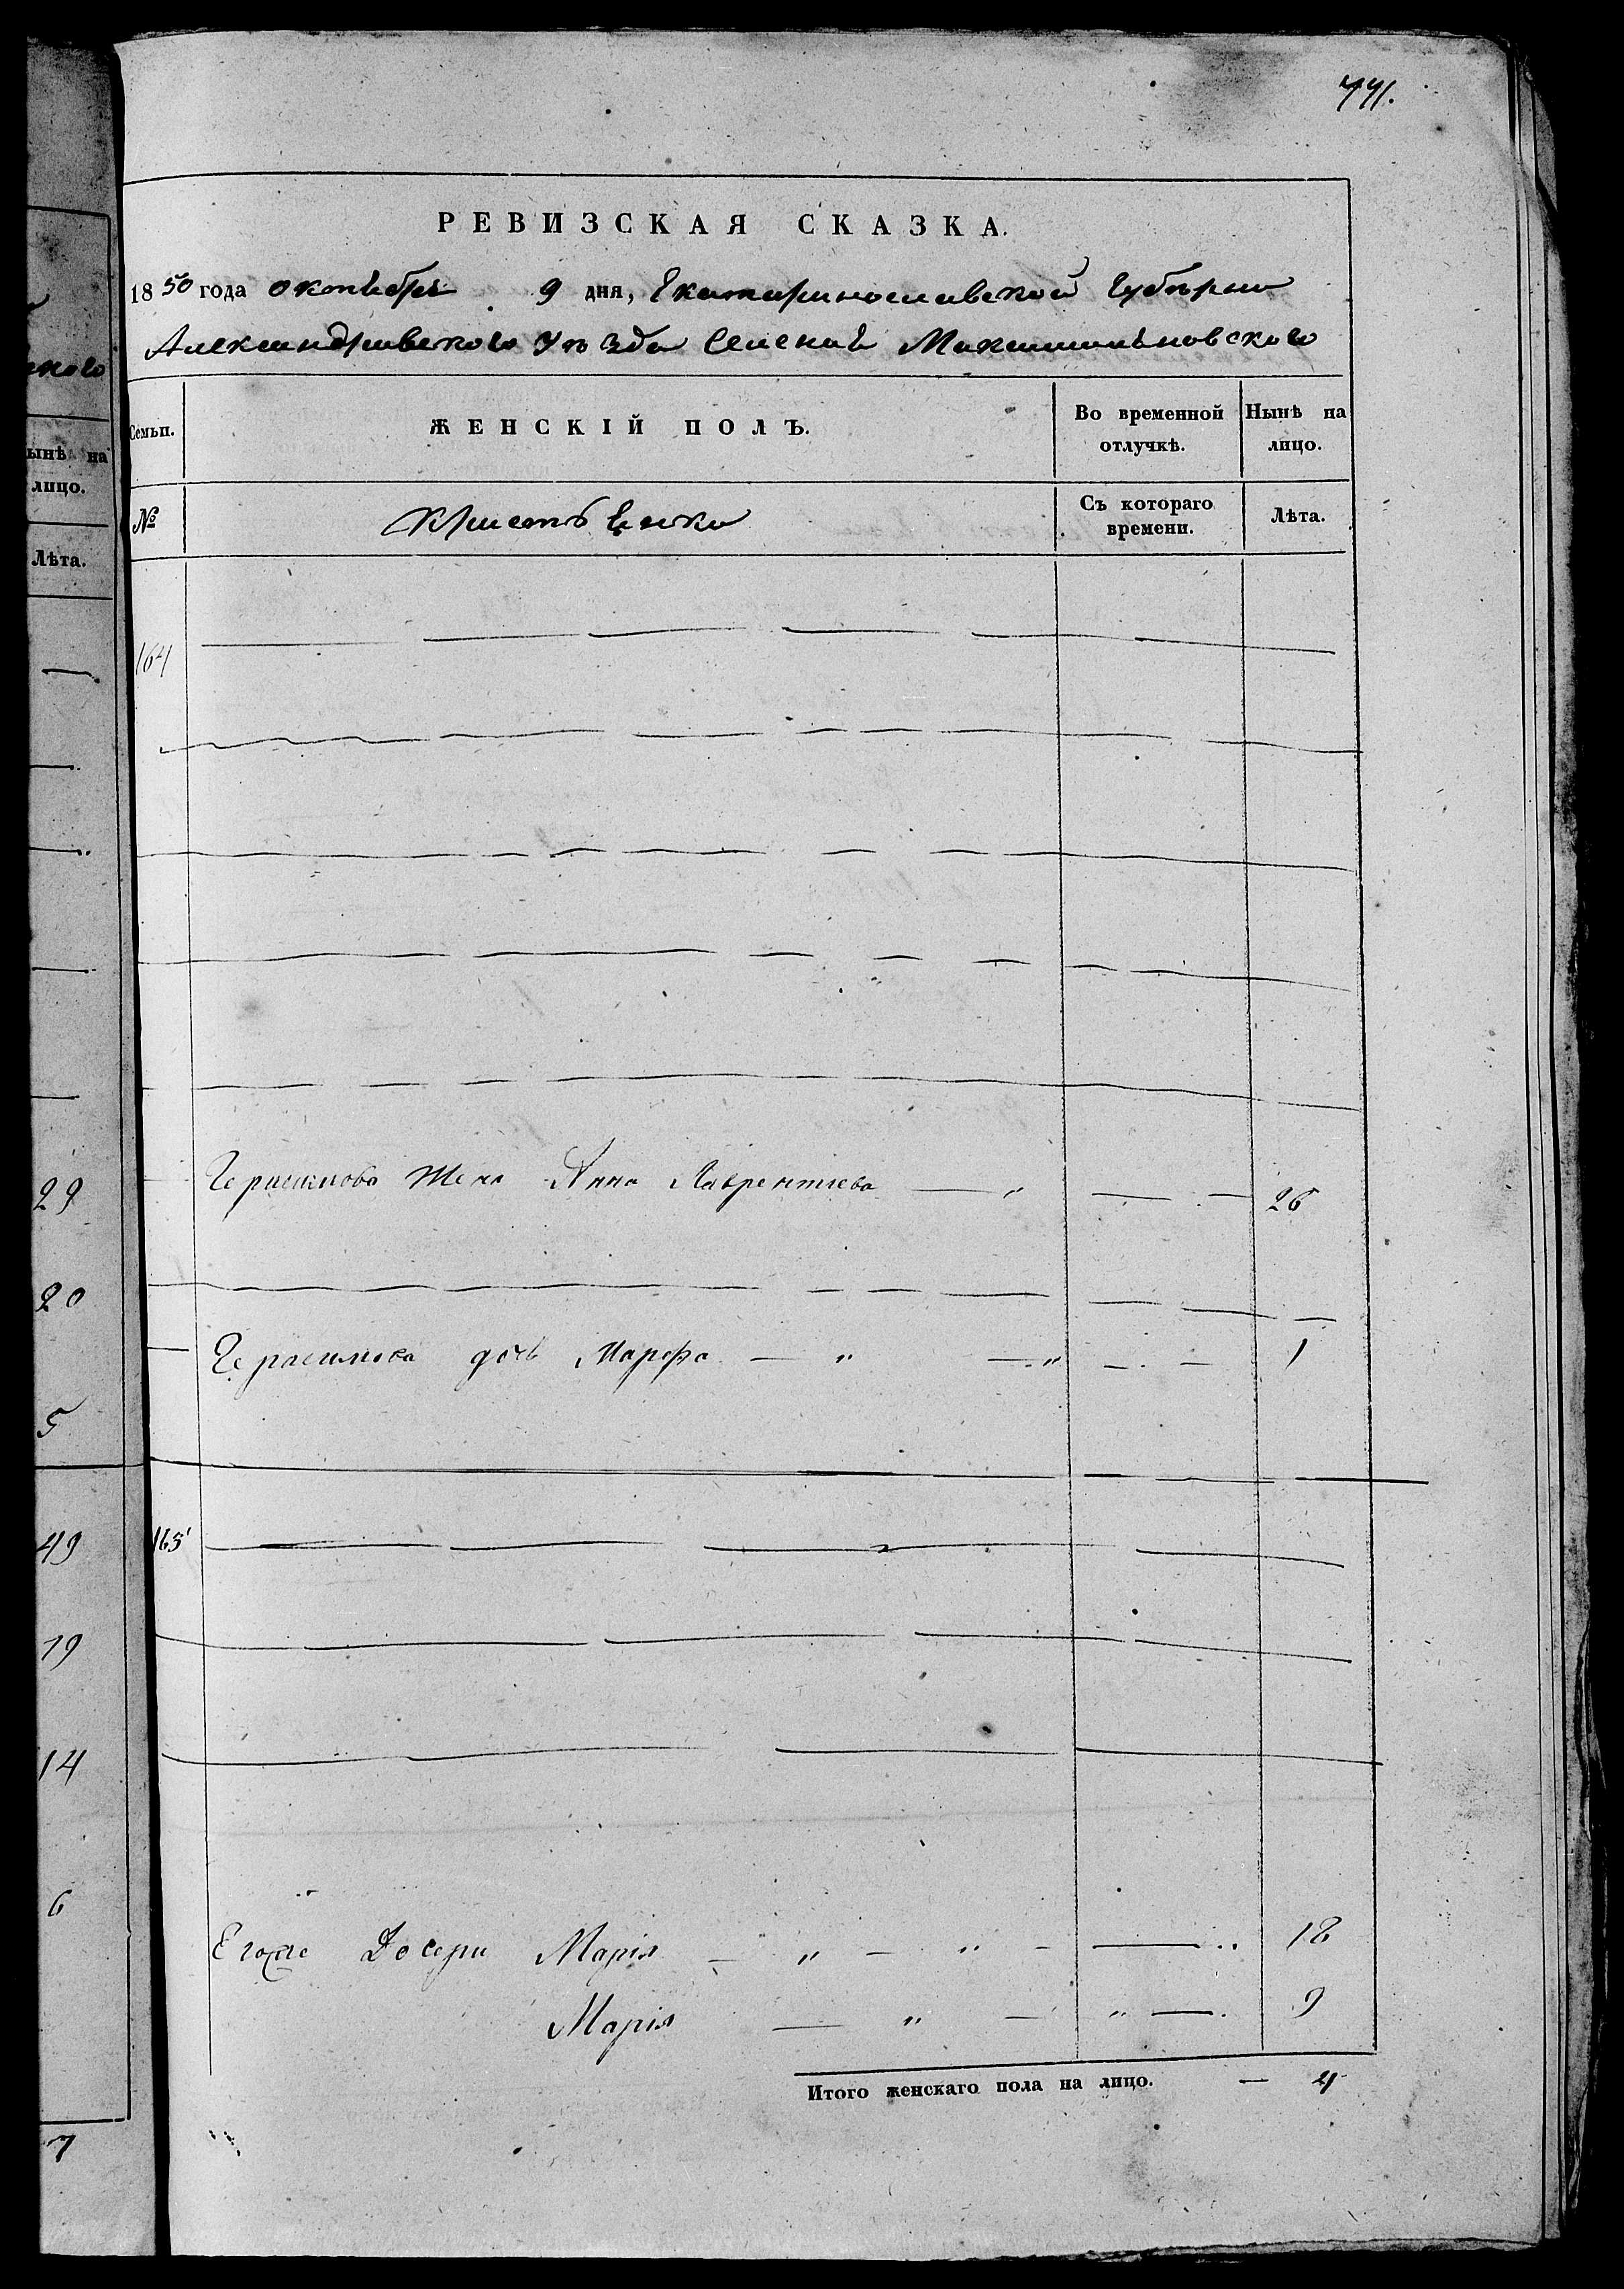 771.
РЕВИЗСКАЯ СКАЗКА.
1850 года октября 9 дня, Екатеринославской Губернии
Александровского Уезда Селения Максимильяновского
Семьи. ЖЕНСКІЙ ПОЛЪ. Во временной отлучкѣ. Нынѣ на лицо.
№ Крестьянки Съ котораго времени. Лѣта.
164
Герасимова жена Анна Лаврентиева — " — — 26
Герасимова дочь Марфа — " — " — — 1
165
Егоже Дочери Марія — " — " — — 18
Марія — " — " — 9
Итого женскаго пола на лицо. — 4
ского
ынѣ на
лицо.
Лѣта.
29
20
5
49
19
14
6
7